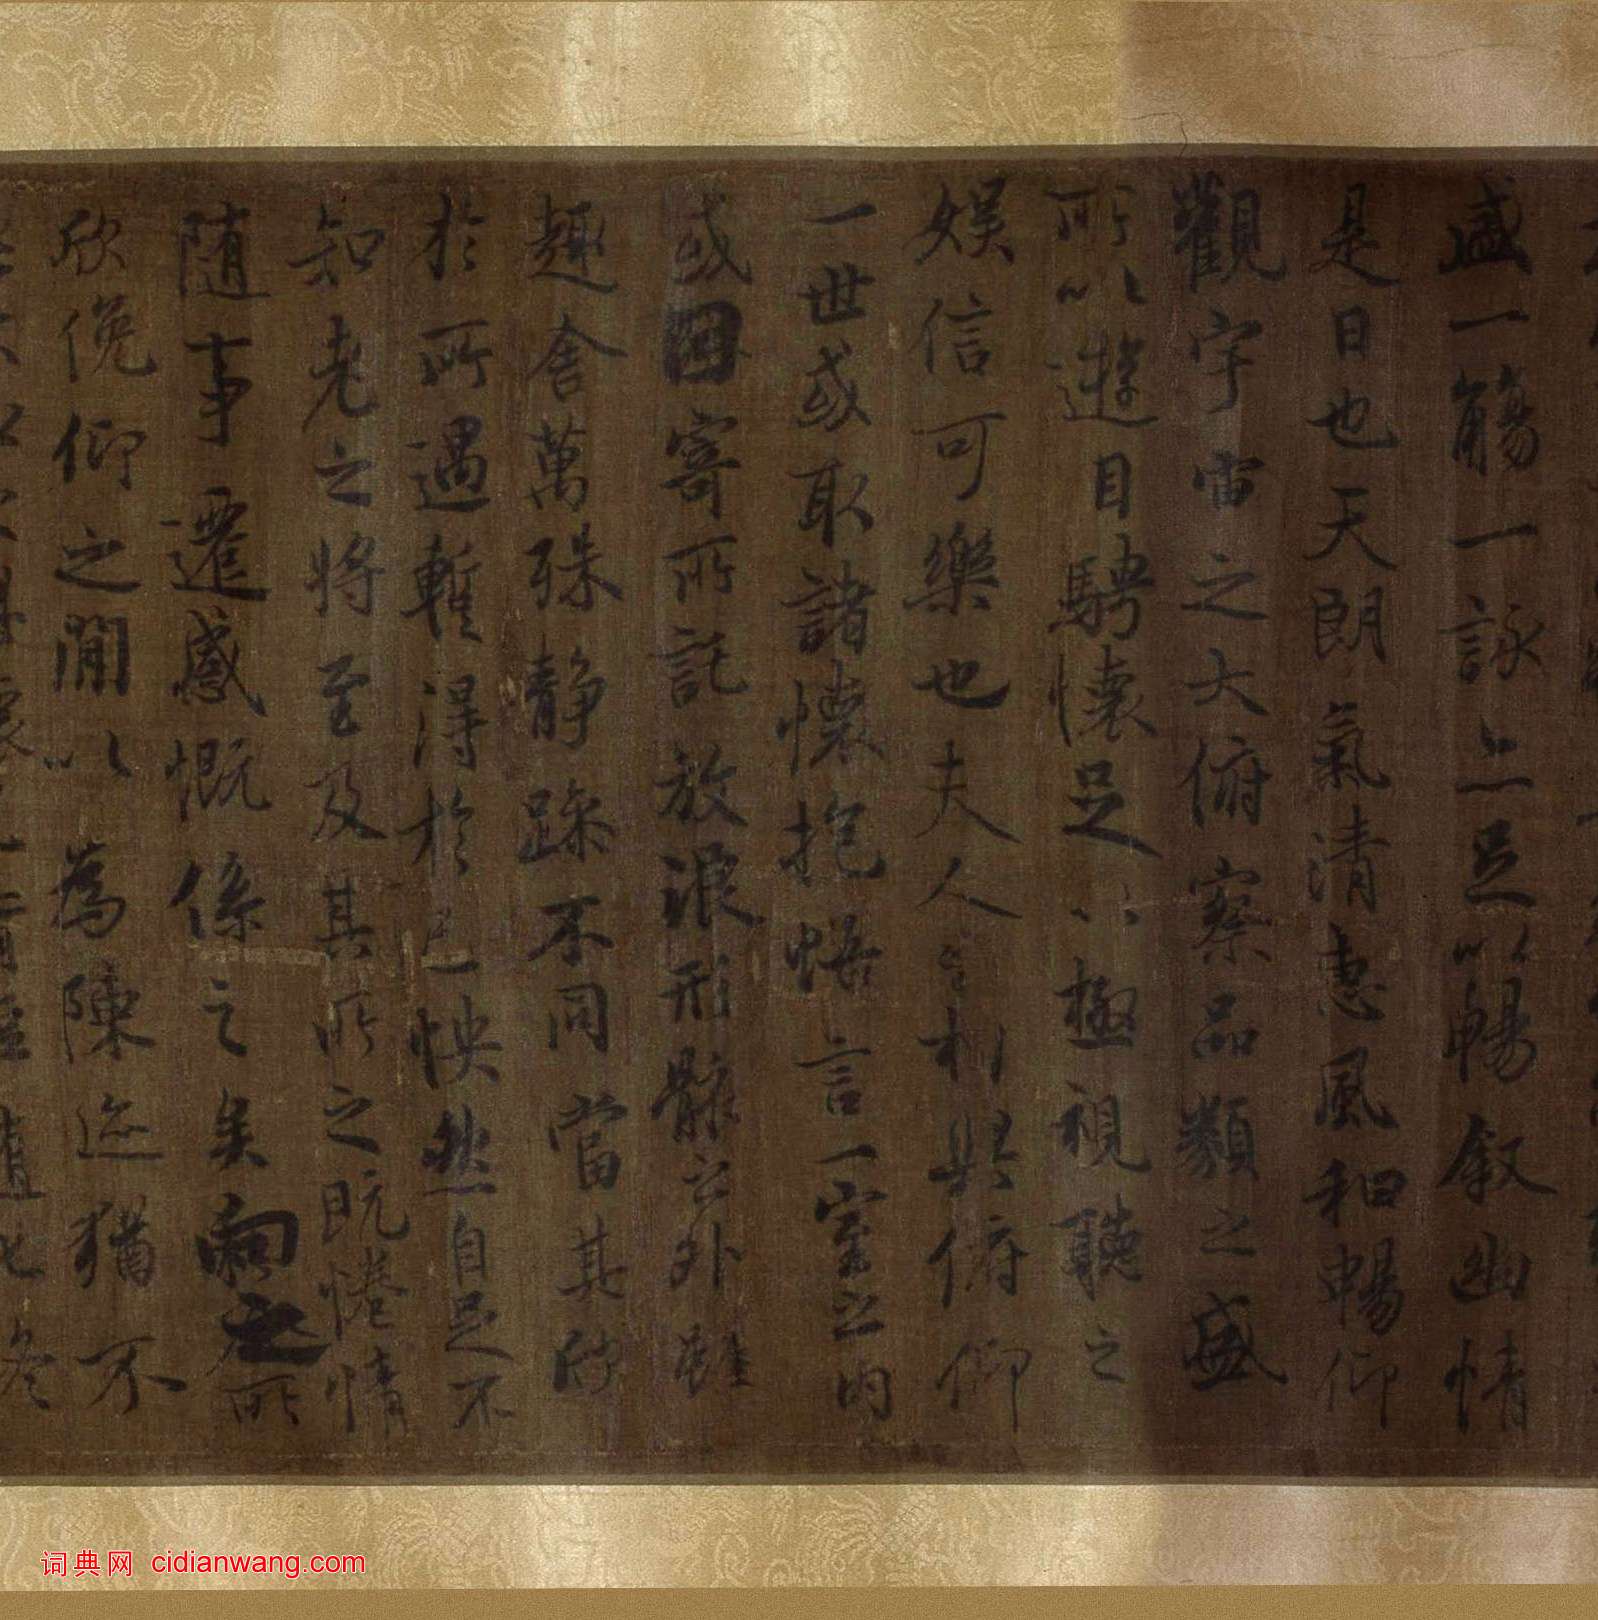 盛一觴一詠亦足以暢叙幽情
是日也天朗氣清惠風和暢仰
觀宇宙之大俯察品類之盛
所以遊目騁懷足以極視聽之
娛信可樂也夫人之相與俯仰
一世或取諸懷抱悟言一室之内
或因寄所託放浪形骸之外雖
趣舍萬殊静躁不同當其欣
於所遇暫得於己怏然自足不
知老之將至及其所之既惓情
随事遷感慨係之矣向之所
欣俛仰之閒以為陳迹猶不
词典网 cidianwang.com